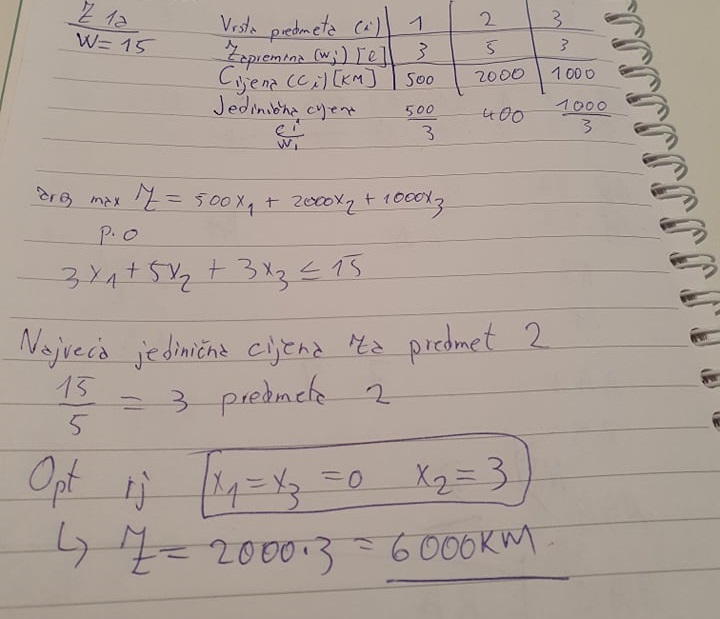 Z 1a
W = 15
Vrsta predmeta (i) 1 2 3
Zapremina (wi) [l] 3 5 3
Cijena (ci) [KM] 500 2000 1000
Jedinična cijena ci/wi 500/3 400 1000/3
arg max Z = 500x1 + 2000x2 + 1000x3
p.o
3x1 + 5x2 + 3x3 ≤ 15
Najveća jedinična cijena za predmet 2
15/5 = 3 predmeta 2
Opt rj x1 = x3 = 0 x2 = 3
↳ Z = 2000·3 = 6000KM